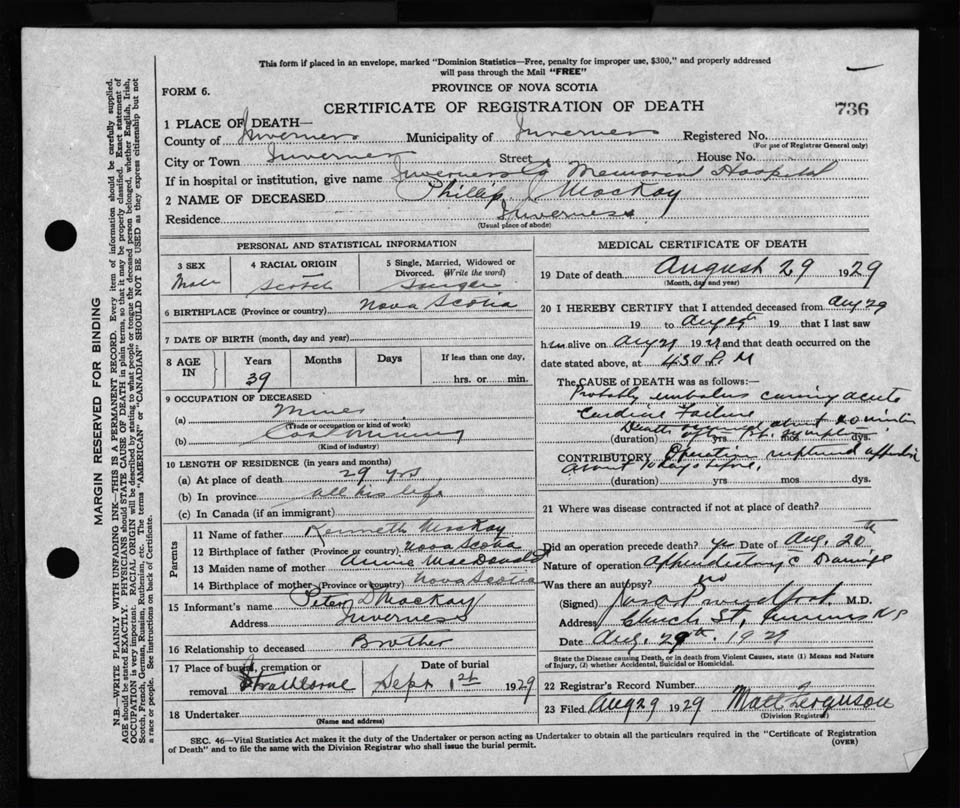 This form if placed in an envelope, marked "Dominion Statistics—Free, penalty for improper use, $300," and properly addressed
will pass through the Mail "FREE"
FORM 6.
PROVINCE OF NOVA SCOTIA
CERTIFICATE OF REGISTRATION OF DEATH
736
1 PLACE OF DEATH—
County of Inverness Municipality of Inverness Registered No.
(For use of Registrar General only)
City or Town Inverness Street House No.
If in hospital or institution, give name Inverness Co Memorial Hospital
2 NAME OF DECEASED Phillip J MacKay
Residence Inverness
(Usual place of abode)
PERSONAL AND STATISTICAL INFORMATION
3 SEX Male
4 RACIAL ORIGIN Scotch
5 Single, Married, Widowed or Divorced. (Write the word) Single
6 BIRTHPLACE (Province or country) Nova Scotia
7 DATE OF BIRTH (month, day and year)
8 AGE IN Years 39 Months Days If less than one day, hrs. or min.
9 OCCUPATION OF DECEASED
(a) Miner
(Trade or occupation or kind of work)
(b) Coal mining
(Kind of industry)
10 LENGTH OF RESIDENCE (in years and months)
(a) At place of death 29 yrs
(b) In province all his life
(c) In Canada (if an immigrant)
Parents
11 Name of father Kenneth MacKay
12 Birthplace of father (Province or country) Nova Scotia
13 Maiden name of mother Annie MacDonald
14 Birthplace of mother (Province or country) Nova Scotia
15 Informant's name Peter D MacKay
Address Inverness
16 Relationship to deceased Brother
17 Place of burial, cremation or removal Strathlorne
Date of burial Sept 1st 1929
18 Undertaker
(Name and address)
MEDICAL CERTIFICATE OF DEATH
19 Date of death August 29 1929
(Month, day and year)
20 I HEREBY CERTIFY that I attended deceased from Aug 29
19 to Aug 19 that I last saw
him alive on Aug 29 19 29 and that death occurred on the
date stated above, at 4 30 P. M
The CAUSE OF DEATH was as follows:
Probably embolus causing acute
Cardiac Failure
Death about 20 minutes
after 1st
(duration) yrs mos dys.
CONTRIBUTORY Operation ruptured appendix
about 10 days before.
(duration) yrs mos dys.
21 Where was disease contracted if not at place of death?
Did an operation precede death? yes Date of Aug. 20th
Nature of operation Appendectomy c Drainage
Was there an autopsy? no
(Signed) M.D.
Address Church St, Inverness NS
Date Aug. 29th. 1929
State the Disease causing Death, or in death from Violent Causes, state (1) Means and Nature
of Injury, (2) whether Accidental, Suicidal or Homicidal.
22 Registrar's Record Number
23 Filed Aug 29 1929 Matt Ferguson
(Division Registrar)
SEC. 46—Vital Statistics Act makes it the duty of the Undertaker or person acting as Undertaker to obtain all the particulars required in the "Certificate of Registration
of Death" and to file the same with the Division Registrar who shall issue the burial permit.
(OVER)
MARGIN RESERVED FOR BINDING
N.B.—WRITE PLAINLY WITH UNFADING INK—THIS IS A PERMANENT RECORD. Every item of information should be carefully supplied.
AGE should be stated EXACTLY. PHYSICIANS should STATE CAUSE OF DEATH in plain terms, so that it may be properly classified. Exact statement of
OCCUPATION is very important. RACIAL ORIGIN will be described by stating to what people or tongue the deceased person belonged, whether English, Irish,
Scotch, French, German, Russian, Ruthenian, etc. The terms "AMERICAN" or "CANADIAN" SHOULD NOT BE USED as they express citizenship but not
a race or people. See instructions on back of Certificate.